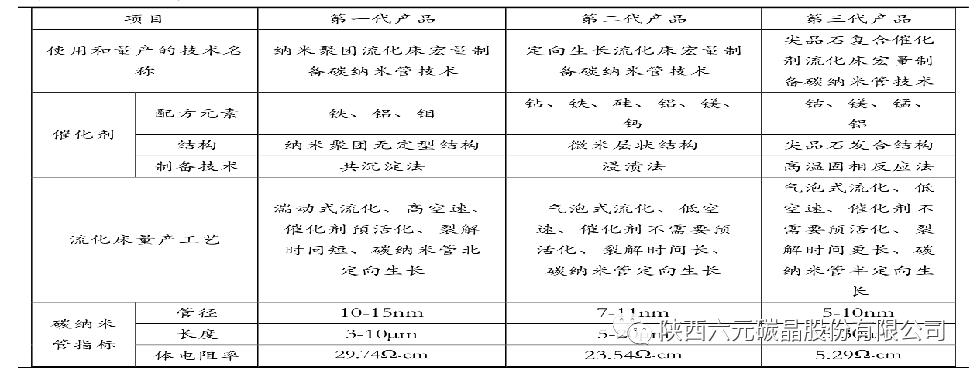 项目
第一代产品
第二代产品
第三代产品
使用和量产的技术名
称
纳米聚团流化床宏量制
备碳纳米管技术
定向生长流化床宏量制
备碳纳米管技术
尖晶石复合催化
剂流化床宏量制
备碳纳米管技术
催化剂
配方元素
铁、铝、钼
钴、铁、硅、铝、镁、
钙
钴、镁、锰、
铝
结构
纳米聚团无定型结构
微米层状结构
尖晶石复合结构
制备技术
共沉淀法
浸渍法
高温固相反应法
流化床量产工艺
湍动式流化、高空速、
催化剂预活化、裂解
时间短、碳纳米管非
定向生长
气泡式流化、低空
速、催化剂不需要预
活化、裂解时间长、
碳纳米管定向生长
气泡式流化、低
空速、催化剂不
需要预活化、裂
解时间更长、碳
纳米管半定向生
长
碳纳米
管指标
管径
10-15nm
7-11nm
5-10nm
长度
3-10μm
体电阻率
29.74Ω·cm
23.54Ω·cm
5.29Ω·cm
陕西六元碳晶股份有限公司